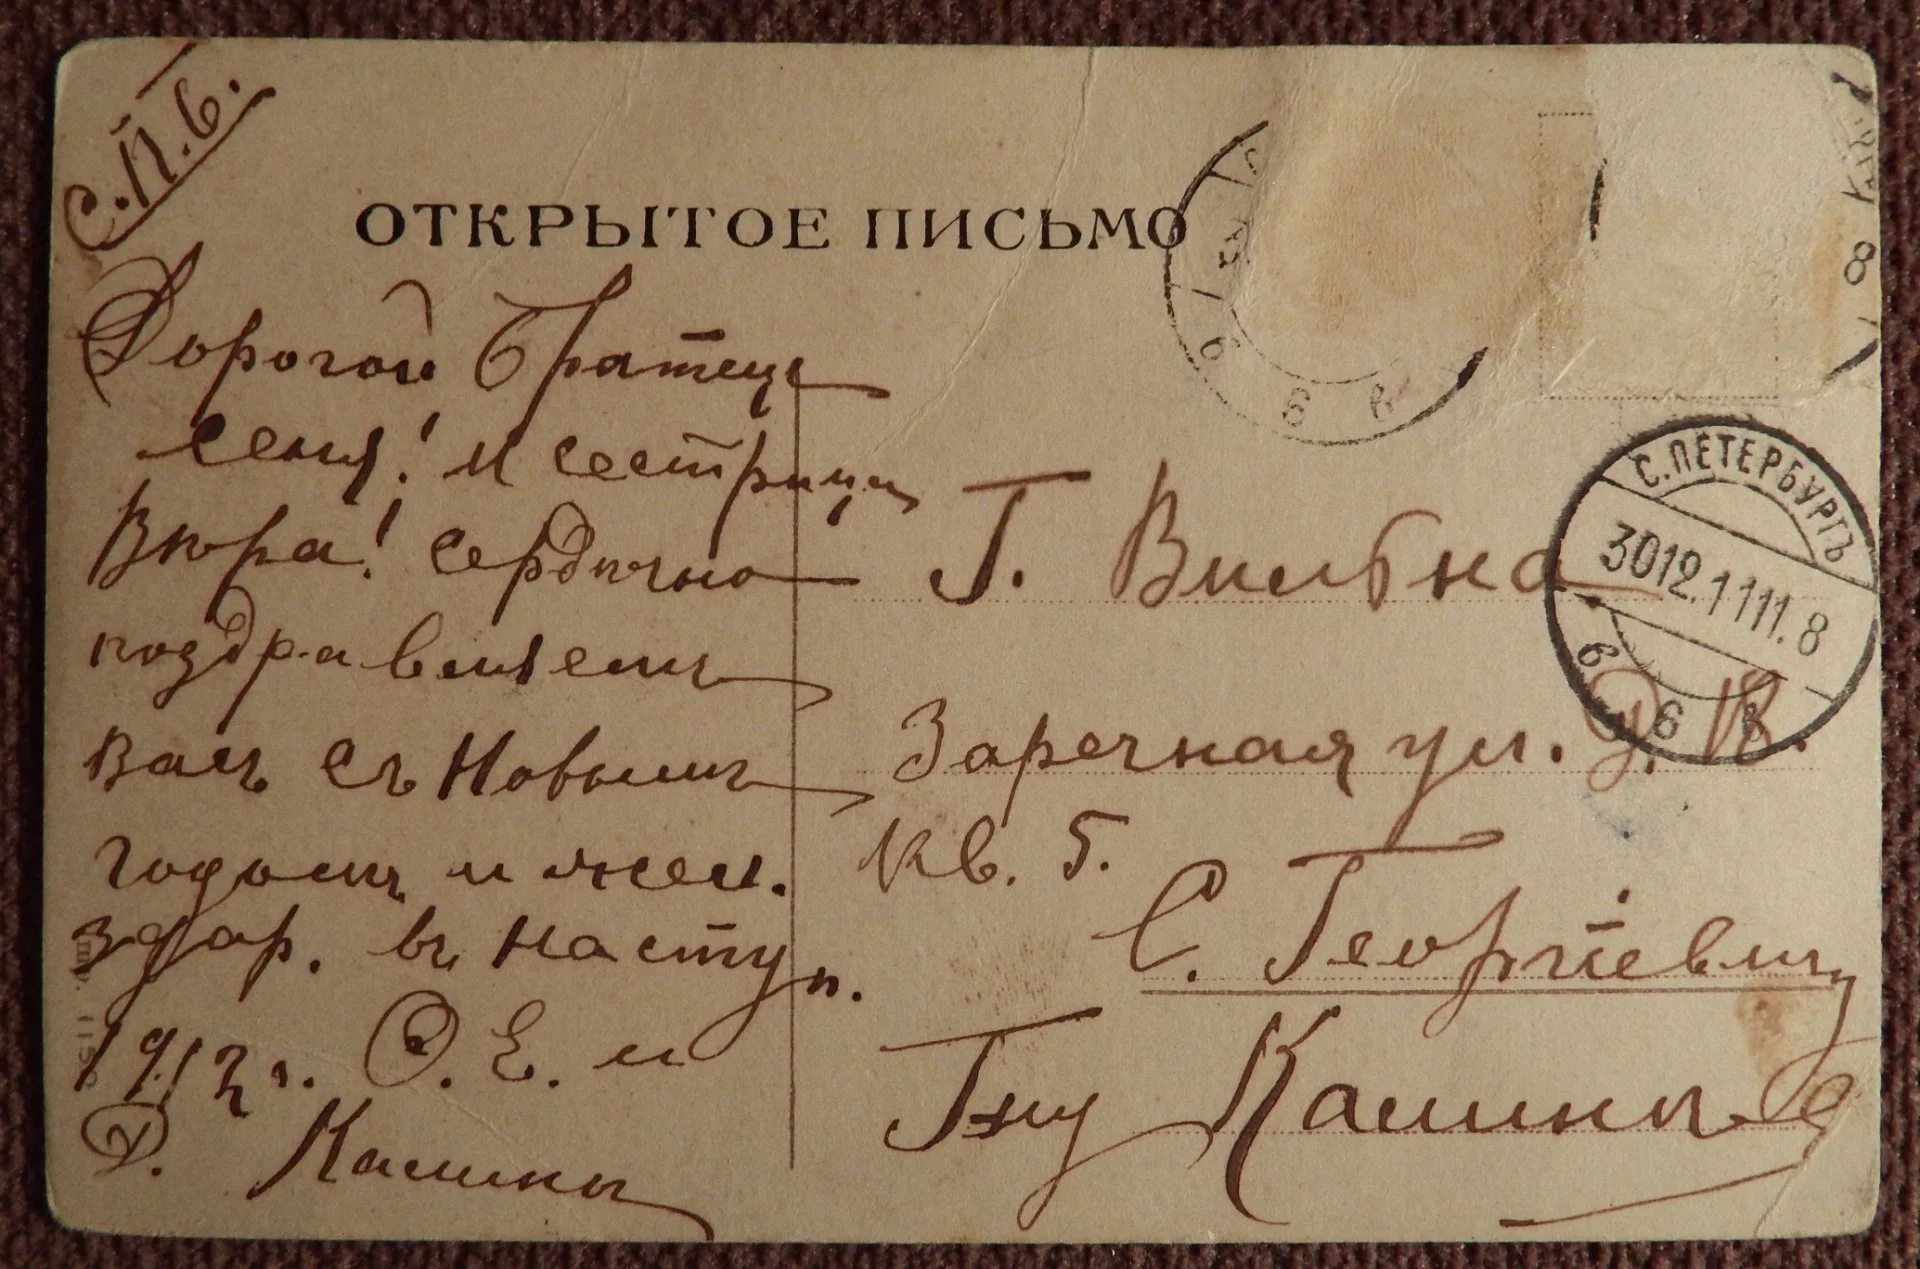 С.П.б.
ОТКРЫТОЕ ПИСЬМО
Дорогой братецъ
Сеня! и сестрица
Вѣра! сердечно
поздравляемъ
Васъ съ Новымъ
годомъ и жел.
здор. въ наступ.
1912 г. О. Е. и
Д. Калины
Г. Вильна
Заречная ул. д.
кв. 5.
С. Георгіевичу
Гну Калину
С. ПЕТЕРБУРГЪ
30 12. 11 11. 8
6 6
6 6
8